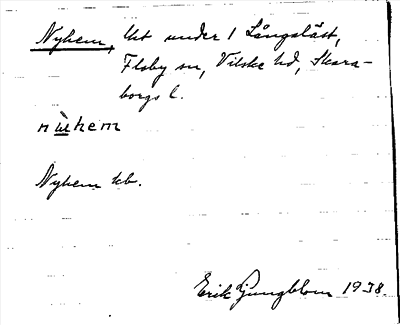 Nyhem, lht under 1 Långslätt,
Floby sn, Vilske hd, Skara-
borgs l.
nùhem
Nyhem kb.
Erik Ljungblom 1938.